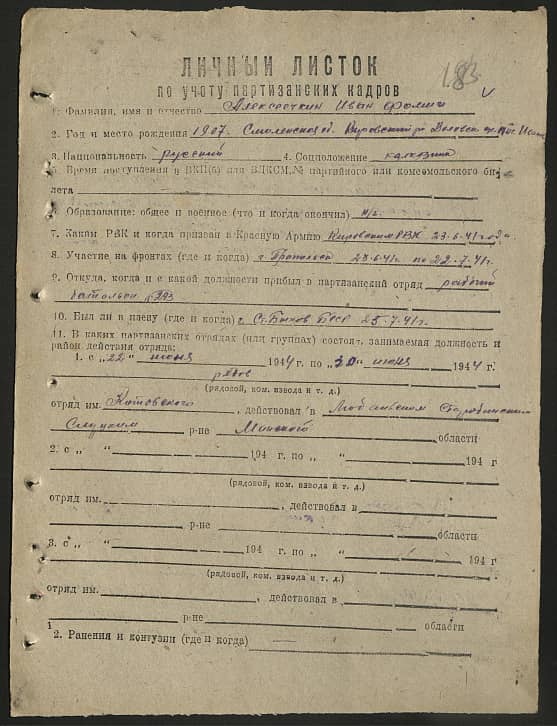 183
ЛИЧНЫЙ ЛИСТОК
по учету партизанских кадров
1. Фамилия, имя и отчество Алексеечкин Иван Фомич
2. Год и место рождения 1907. Смоленская об. Кировский р-
3. Национальность русский 4. Соцположение
5. Время поступления в ВКП(б) или ВЛКСМ, № партийного или комсомольского би-
лета
6. Образование: общее и военное (что и когда окончил) н/с.
7. Каким РВК и когда призван в Красную Армию Кировским РВК 23-6-41 года
8. Участие на фронтах (где и когда) 23-6-41г. по 22-7-41г.
9. Откуда, когда и с какой должности прибыл в партизанский отряд рабочий
батальон
10. Был ли в плену (где и когда) г. Ст. Быхов БССР 25-7-41г.
11. В каких партизанских отрядах (или группах) состоял, занимаемая должность и
район действия отряда:
1. с „22“ июня 1944 г. по „30“ июня 1944 г.
рядов
(рядовой, ком. взвода и т. д.)
отряд им. Котовского, действовал в Любаньском Старобинском
Слуцком р-не Минской области
2. с „ “ 194 г. по „ “ 194 г
(рядовой, ком. взвода и т. д.)
отряд им. , действовал в
р-не области
3. с „ “ 194 г. по „ “ 194 г
(рядовой, ком. взвода и т. д.)
отряд им. , действовал в
р-не области
2. Ранения и контузии (где и когда) —